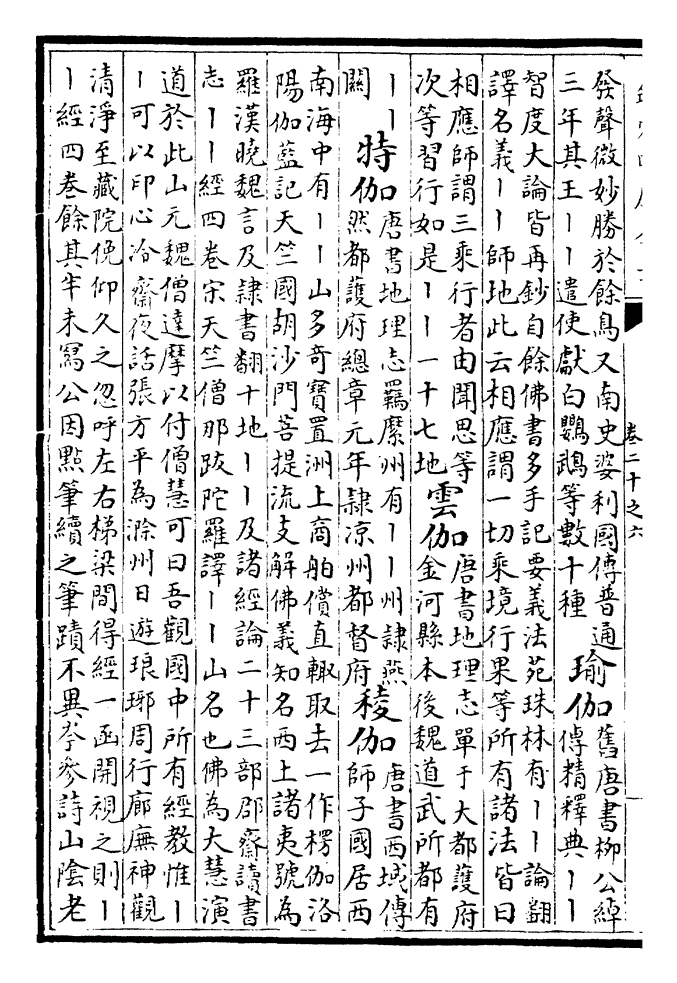 卷二十之六
發聲微妙勝於餘鳥又南史婆利國傳普通
三年其王丨丨遣使獻白鸚鵡等數十種
瑜伽
舊唐書柳公綽
傳精釋典丨丨
智度大論皆再鈔自餘佛書多手記要義法苑珠林有丨丨論翻
譯名義丨丨師地此云相應謂一切乘境行果等所有諸法皆曰
相應師謂三乘行者由聞思等
次等習行如是丨丨一十七地
雲伽
唐書地理志單于大都護府
金河縣本後魏道武所都有
丨丨
關
特伽
唐書地理志羈縻州有丨丨州隷燕
然都護府總章元年隷涼州都督府
稜伽
唐書西域傳
師子國居西
南海中有丨丨山多奇寶置洲上商舶償直輙取去一作楞伽洛
陽伽藍記天竺國胡沙門菩提流支解佛義知名西土諸夷號為
羅漢曉魏言及隷書翻十地丨丨及諸經論二十三部郡齋讀書
志丨丨經四卷宋天竺僧那跋陀羅譯丨丨山名也佛為大慧演
道於此山元魏僧達摩以付僧慧可曰吾觀國中所有經教惟丨
丨可以印心冷齋夜話張方平為滁州日遊琅琊周行廊廡神觀
清淨至藏院俛仰久之忽呼左右梯梁間得經一函開視之則丨
丨經四卷餘其半未寫公因點筆續之筆蹟不異岑參詩山陰老